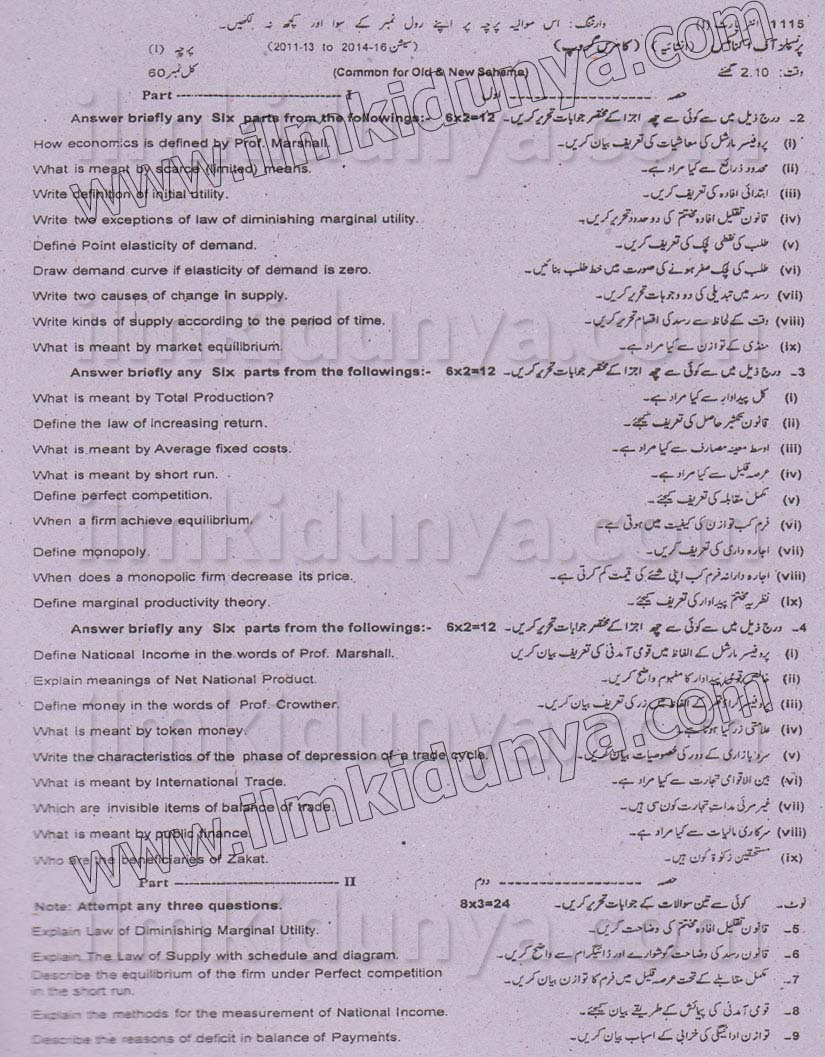 1115 انٹر پارٹ (I) وارننگ: اس سوالیہ پرچہ پر اپنے رول نمبر کے سوا اور کچھ نہ لکھیں۔
پرنسپلز آف اکنامکس (انشائیہ) (کامرس گروپ) (سیشن 2011-13 to 2014-16) پرچہ (I)
وقت: 2.10 گھنٹے (Common for Old & New Scheme) کل نمبر 60
Part ---------- I حصہ ---------- اول
Answer briefly any Six parts from the followings:- 6x2=12 درج ذیل میں سے کوئی سے چھ اجزا کے مختصر جوابات تحریر کریں۔ -2
How economics is defined by Prof. Marshall. پروفیسر مارشل کی معاشیات کی تعریف بیان کریں۔ (i)
What is meant by scarce (limited) means. محدود ذرائع سے کیا مراد ہے۔ (ii)
Write definition of initial utility. ابتدائی افادہ کی تعریف کریں۔ (iii)
Write two exceptions of law of diminishing marginal utility. قانون تقلیل افادہ مختتم کی دو حدود تحریر کریں۔ (iv)
Define Point elasticity of demand. طلب کی نقطی لچک کی تعریف کریں۔ (v)
Draw demand curve if elasticity of demand is zero. طلب کی لچک صفر ہونے کی صورت میں خط طلب بنائیں۔ (vi)
Write two causes of change in supply. رسد میں تبدیلی کی دو وجوہات تحریر کریں۔ (vii)
Write kinds of supply according to the period of time. وقت کے لحاظ سے رسد کی اقسام تحریر کریں۔ (viii)
What is meant by market equilibrium. منڈی کے توازن سے کیا مراد ہے۔ (ix)
Answer briefly any Six parts from the followings:- 6x2=12 درج ذیل میں سے کوئی سے چھ اجزا کے مختصر جوابات تحریر کریں۔ -3
What is meant by Total Production? کل پیداوار سے کیا مراد ہے۔ (i)
Define the law of increasing return. قانون تکثیر حاصل کی تعریف کیجئے۔ (ii)
What is meant by Average fixed costs. اوسط معینہ مصارف سے کیا مراد ہے۔ (iii)
What is meant by short run. عرصہ قلیل سے کیا مراد ہے۔ (iv)
Define perfect competition. مکمل مقابلہ کی تعریف کیجئے۔ (v)
When a firm achieve equilibrium. فرم کب توازن کی کیفیت میں ہوتی ہے (vi)
Define monopoly. اجارہ داری کی تعریف کریں۔ (vii)
When does a monopolic firm decrease its price. اجارہ دارانہ فرم کب اپنی شئے کی قیمت کم کرتی ہے۔ (viii)
Define marginal productivity theory. نظریہ مختتم پیداوار کی تعریف کیجئے۔ (ix)
Answer briefly any Six parts from the followings:- 6x2=12 درج ذیل میں سے کوئی سے چھ اجزا کے مختصر جوابات تحریر کریں۔ -4
Define National Income in the words of Prof. Marshall. پروفیسر مارشل کے الفاظ میں قومی آمدنی کی تعریف بیان کریں (i)
Explain meanings of Net National Product. خالص قومی پیداوار کا مفہوم واضح کریں۔ (ii)
Define money in the words of Prof. Crowther. پروفیسر کراؤتھر کے الفاظ میں زر کی تعریف بیان کریں۔ (iii)
What is meant by token money. علامتی زر کیا ہوتا ہے۔ (iv)
Write the characteristics of the phase of depression of a trade cycle. سرد بازاری کے دور کی خصوصیات بیان کریں۔ (v)
What is meant by International Trade. بین الاقوامی تجارت سے کیا مراد ہے۔ (vi)
Which are invisible items of balance of trade. غیر مرئی مدات تجارت کون سی ہیں۔ (vii)
What is meant by public finance. سرکاری مالیات سے کیا مراد ہے۔ (viii)
Who are the beneficiaries of Zakat. مستحقین زکوٰۃ کون ہیں۔ (ix)
Part ---------- II حصہ ---------- دوم
Note: Attempt any three questions. 8x3=24 کوئی سے تین سوالات کے جوابات تحریر کریں۔ نوٹ۔
Explain Law of Diminishing Marginal Utility. قانون تقلیل افادہ مختتم کی وضاحت کریں۔ -5
Explain The Law of Supply with schedule and diagram. قانون رسد کی وضاحت گوشوارے اور ڈائیگرام سے واضح کریں۔ -6
Describe the equilibrium of the firm under Perfect competition مکمل مقابلے کے تحت عرصہ قلیل میں فرم کا توازن بیان کریں۔ -7
in the short run.
Explain the methods for the measurement of National Income. قومی آمدنی کی پیمائش کے طریقے بیان کیجئے۔ -8
Describe the reasons of deficit in balance of Payments. توازن ادائیگی کی خرابی کے اسباب بیان کریں۔ -9
www.ilmkidunya.com
www.ilmkidunya.com
ilmkidunya.com
ilmkidunya.com
ilmkidunya.com
ilmkidunya.com